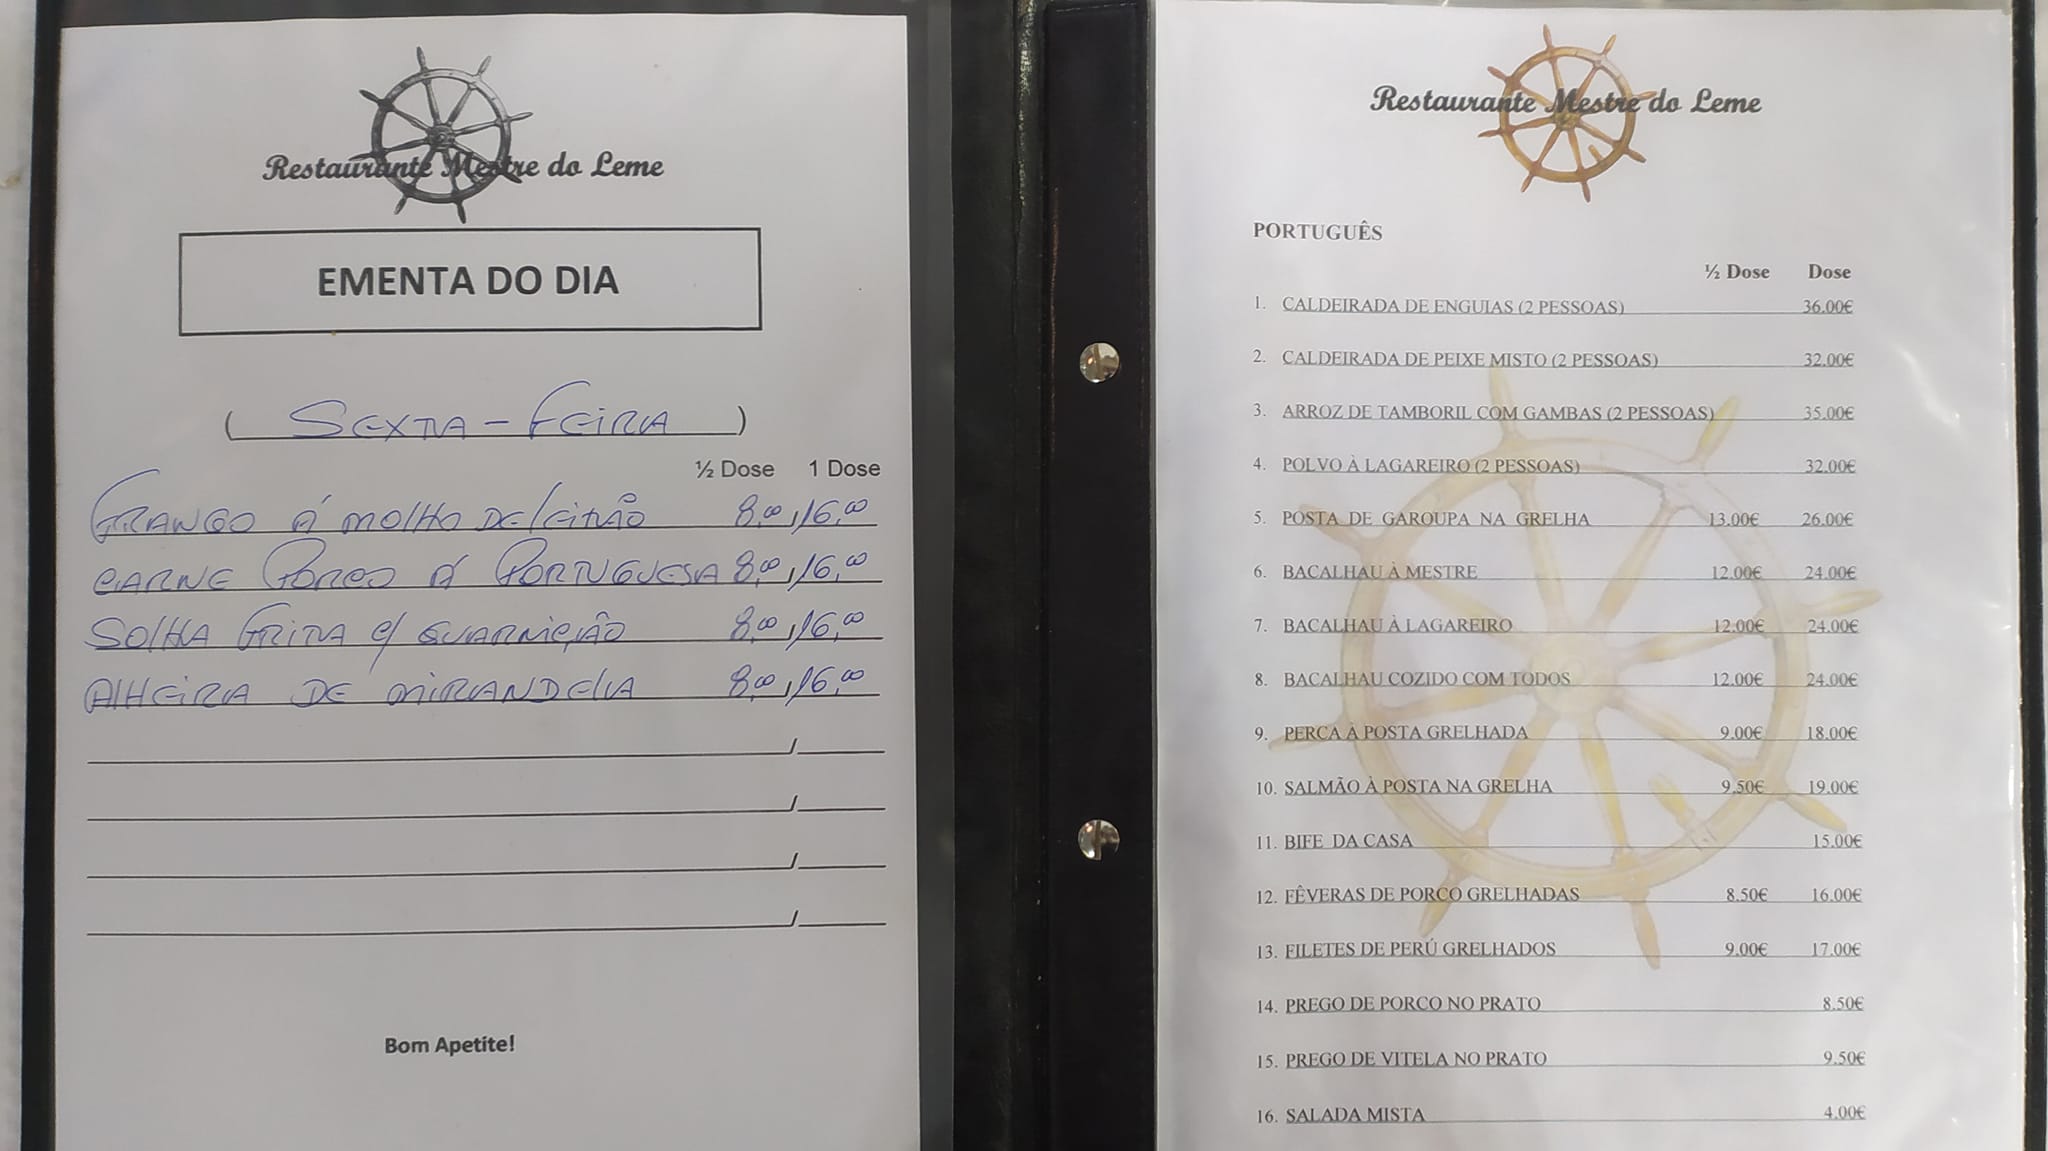 Restaurante Mestre do Leme
EMENTA DO DIA
( SEXTA-FEIRA )
½ Dose 1 Dose
FRANGO Á MOLHO DE LEITÃO 8,00 / 16,00
CARNE PORCO Á PORTUGUESA 8,00 / 16,00
SOLHA FRITA C/ GUARNIÇÃO 8,00 / 16,00
ALHEIRA DE MIRANDELA 8,00 / 16,00
Bom Apetite!
Restaurante Mestre do Leme
PORTUGUÊS
½ Dose Dose
1. CALDEIRADA DE ENGUIAS (2 PESSOAS) 36.00€
2. CALDEIRADA DE PEIXE MISTO (2 PESSOAS) 32.00€
3. ARROZ DE TAMBORIL COM GAMBAS (2 PESSOAS) 35.00€
4. POLVO À LAGAREIRO (2 PESSOAS) 32.00€
5. POSTA DE GAROUPA NA GRELHA 13.00€ 26.00€
6. BACALHAU À MESTRE 12.00€ 24.00€
7. BACALHAU À LAGAREIRO 12.00€ 24.00€
8. BACALHAU COZIDO COM TODOS 12.00€ 24.00€
9. PERCA À POSTA GRELHADA 9.00€ 18.00€
10. SALMÃO À POSTA NA GRELHA 9.50€ 19.00€
11. BIFE DA CASA 15.00€
12. FÊVERAS DE PORCO GRELHADAS 8.50€ 16.00€
13. FILETES DE PERÚ GRELHADOS 9.00€ 17.00€
14. PREGO DE PORCO NO PRATO 8.50€
15. PREGO DE VITELA NO PRATO 9.50€
16. SALADA MISTA 4.00€